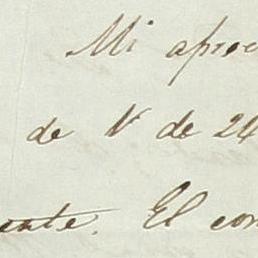 Mi aprec
de V de 24
ente. El con